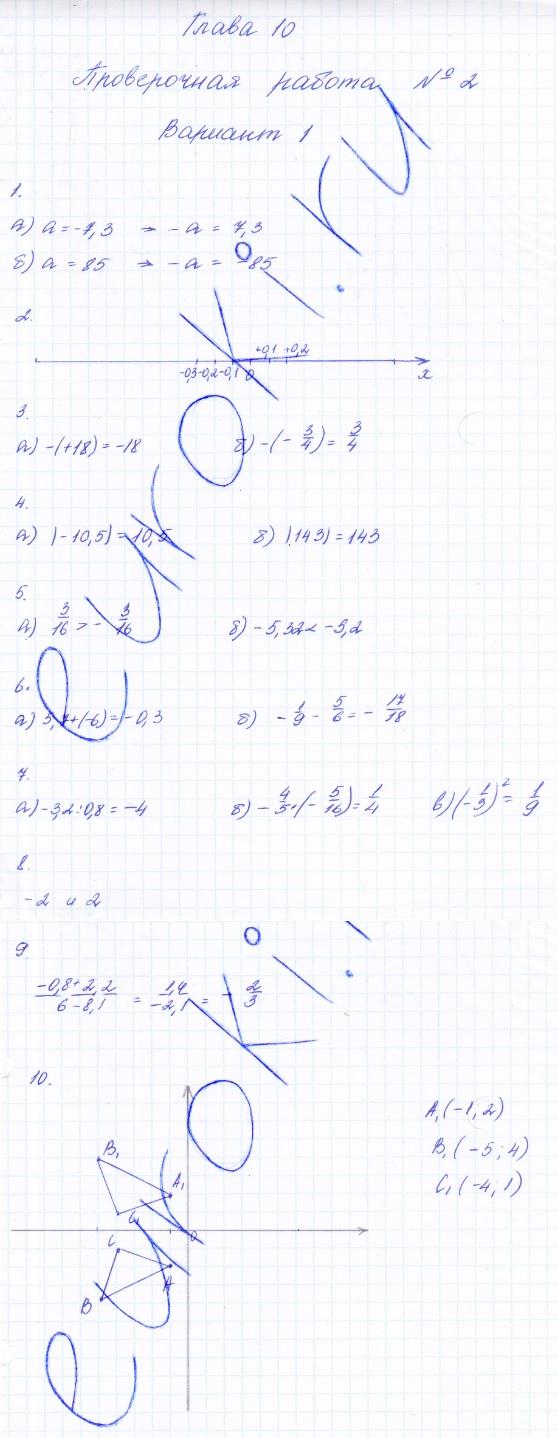 Глава 10
Проверочная работа № 2
Вариант 1
1.
а) a = -7,3 → -a = 7,3
б) a = 85 → -a = -85
2.
+0,1 +0,2
-0,3 -0,2 -0,1 0 x
3.
а) -(+18) = -18 б) -(-3/4) = 3/4
4.
а) |-10,5| = 10,5 б) |143| = 143
5.
а) 3/16 > -3/16 б) -5,32 < -3,2
6.
а) 5,7+(-6) = -0,3 б) -1/9 - 5/6 = -17/18
7.
а) -3,2:0,8 = -4 б) -4/5·(-5/16) = 1/4 в) (-1/3)² = 1/9
8.
-2 и 2
9.
(-0,8+2,2)/(6-8,1) = 1,4/(-2,1) = -2/3
10.
A₁(-1; 2)
B₁(-5; 4)
C₁(-4; 1)
B₁
A₁
C₁
0
C
A
B
euroki.ru
euroki.